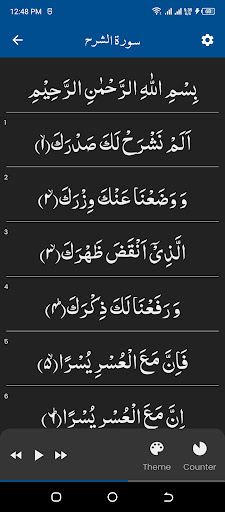 12:48 PM
سورة الشرح
بِسْمِ اللهِ الرَّحْمٰنِ الرَّحِيْمِ
1
اَلَمْ نَشْرَحْ لَكَ صَدْرَكَ ﴿۱﴾
2
وَ وَضَعْنَا عَنْكَ وِزْرَكَ ﴿۲﴾
3
الَّذِيْٓ اَنْقَضَ ظَهْرَكَ ﴿۳﴾
4
وَ رَفَعْنَا لَكَ ذِكْرَكَ ﴿۴﴾
5
فَاِنَّ مَعَ الْعُسْرِ يُسْرًا ﴿۵﴾
6
اِنَّ مَعَ الْعُسْرِ يُسْرًا ﴿۶﴾
Theme Counter